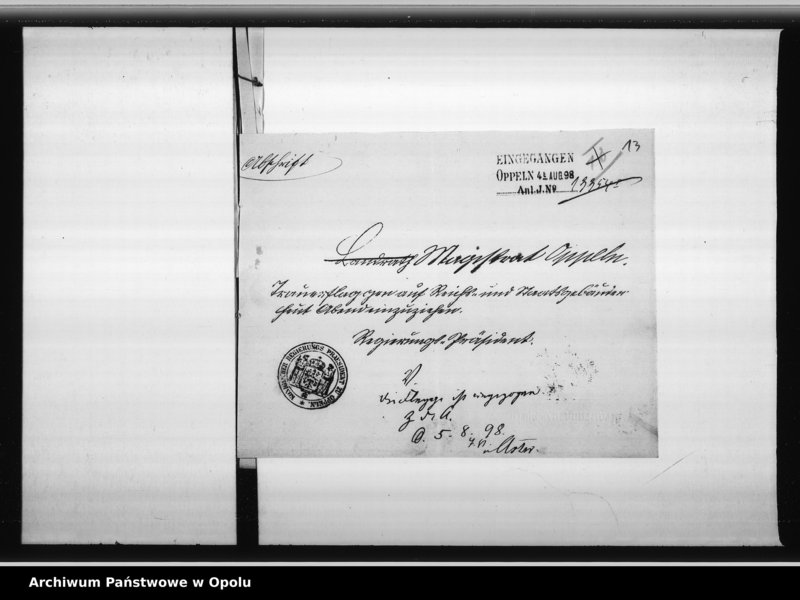 Abschrift
13
EINGEGANGEN
OPPELN 4. AUG. 98
Anl. J. No
Landrath Magistrat Oppeln.
Trauerflaggen auf Reichs- und Staatsgebäuden
heut Abend einzuziehen.
Regierungs-Präsident.
KOENIGLICHER REGIERUNGS PRAESIDENT ZU OPPELN
V.
die Flagge ist eingezogen
z. d. A.
O. 5. 8. 98.
Archiwum Państwowe w Opolu